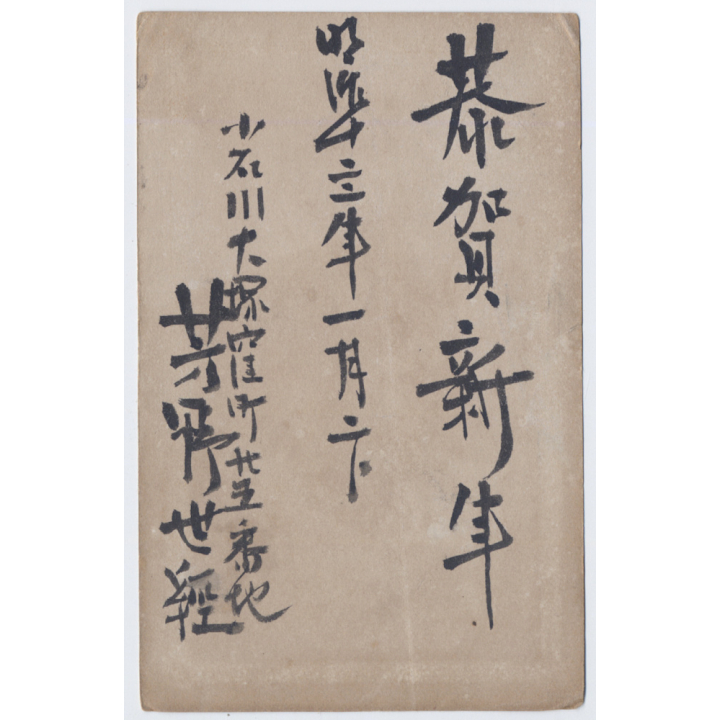 恭賀新年
明治卅三年一月
小石川大塚窪町廿五番地
芳野世經